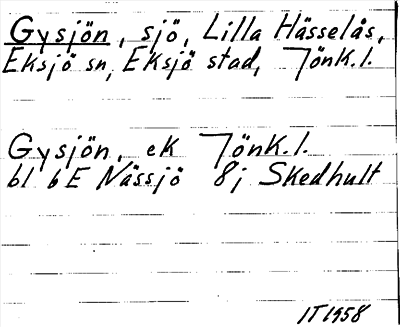 Gysjön, sjö, Lilla Hässelås,
Eksjö sn, Eksjö stad, Jönk.l.
Gysjön, ek Jönk.l.
bl 6E Nässjö 8j Skedhult
IT1958